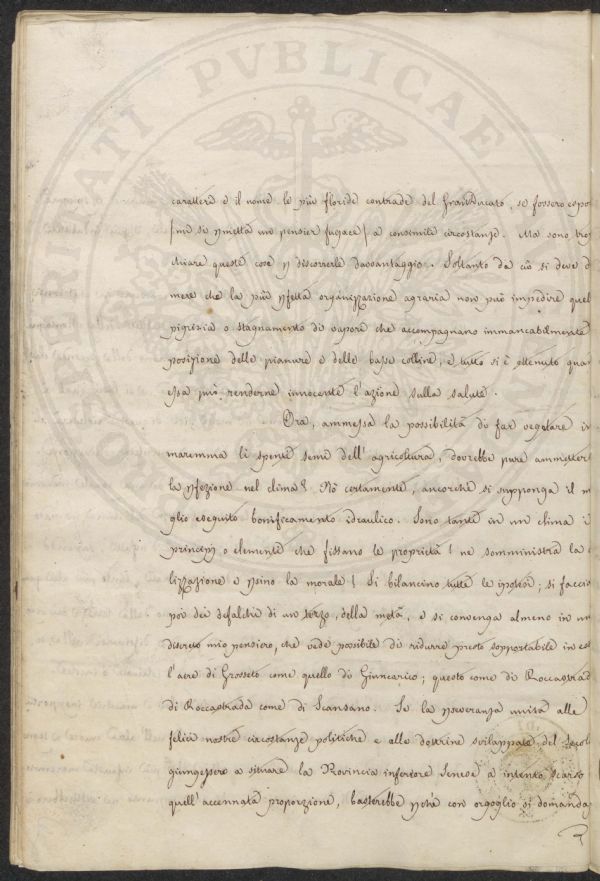 carattere e il nome le più floride contrade del Gran Ducato, se fossero espo
/mi si ꝑmetta un pensier fugace/ a consimile circostanze. Ma sono trop
chiare queste cose ꝑ discorrerle davantaggio. Soltanto da ciò si deve d
mere che la più ꝑfetta organizzazione agraria non può impedire quel
pigrizia o stagnamento di vapore che accompagnano immancabilmente
posizione delle pianure e delle basse colline, e tutto si è ottenuto qua
essa può renderne innocente l'azione sulla salute.
Ora, ammessa la possibilità di far vegetare in
maremma li spenti semi dell'agricoltura, dovrebbe pure ammetter
la ꝑfezione nel clima? Nò certamente, ancorchè si supponga il m
glio eseguito bonificamento idraulico. Sono tante in un clima i
principj o elementi che fissano le proprietà! ne somministra la
lizzazione e ꝑsino la morale! Si bilancino tutte le ipotesi; si faccia
poi dei defalchi di un terzo, della metà, e si convenga almeno in un
discreto mio pensiero, che vede possibile di ridurre presto sopportabile in es
l'aere di Grosseto come quello di Giuncarico; questo come di Roccastrad
di Roccastrada come di Scansano. Se la ꝑseveranza unita alle
felici nostre circostanze politiche e alle dottrine sviluppate del Secol
giungessero a situare la Provincia inferiore Senese a intento scarso
quell'accennata proporzione, basterebbe ꝑchè con orgoglio si domanda
PVBLICAE